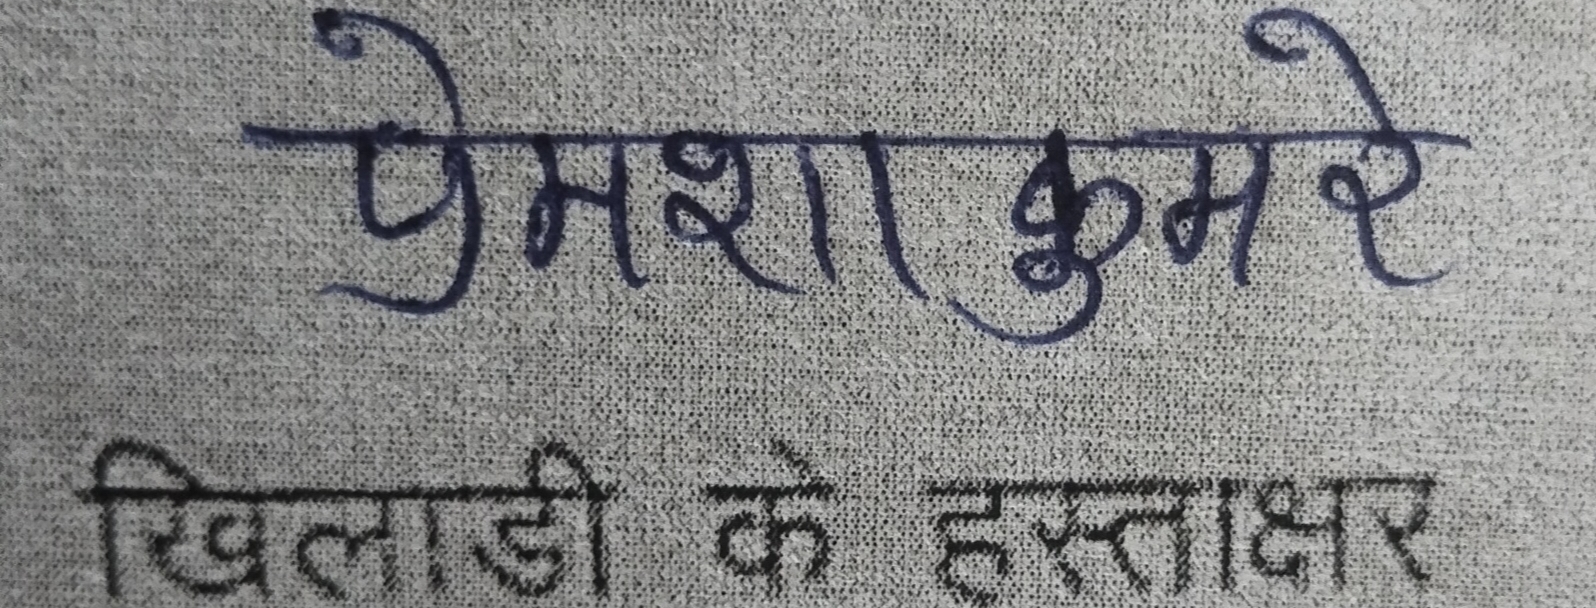 प्रेमशा कुमरे
खिलाडी के हस्ताक्षर